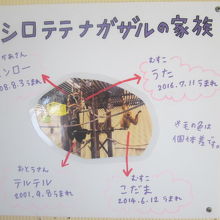 シロテテナガザルの家族
かあさん
ンロー
08.8.3うまれ
むすこ
うた
2016.7.11うまれ
※毛の色は
個体差です。
おとうさん
テルテル
2001.9.8うまれ
むすこ
こだま
2014.6.12うまれ